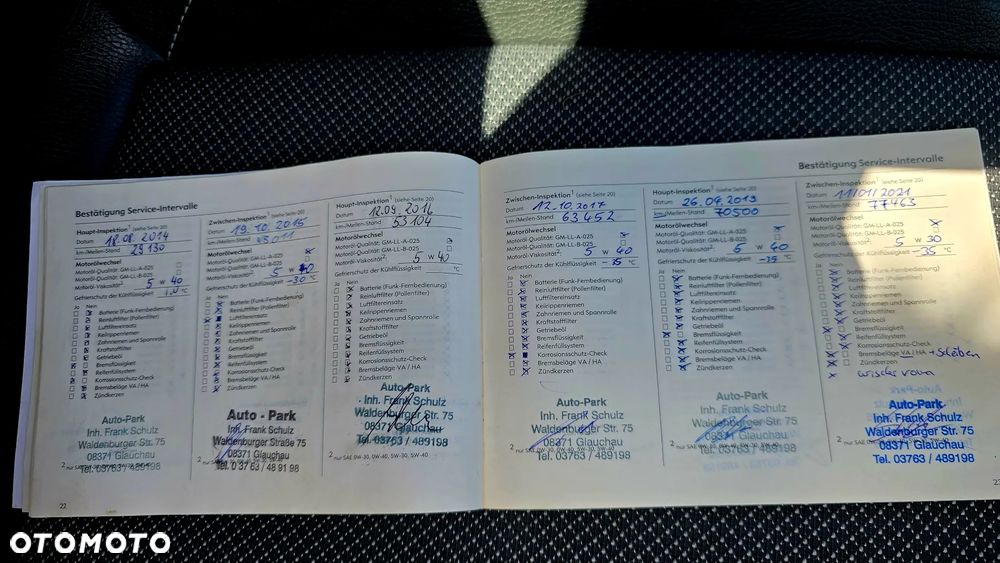 Bestätigung Service-Intervalle
Haupt-Inspektion¹ (siehe Seite 20)
Datum 18.08.2014
km-/Meilen-Stand 29130
Motorölwechsel
Motoröl-Qualität: GM-LL-A-025
Motoröl-Qualität: GM-LL-B-025
Motoröl-Viskosität²: 5 W 40
Gefriergrenze der Kühlflüssigkeit °C
Ja Nein
Batterie (Funk-Fernbedienung)
Reinluftfilter (Pollenfilter)
Luftfiltereinsatz
Keilrippenriemen
Zahnriemen und Spannrolle
Kraftstofffilter
Getriebeöl
Bremsflüssigkeit
Reifenfüllsystem
Korrosionsschutz-Check
Bremsbeläge VA / HA
Zündkerzen
Auto-Park
Inh. Frank Schulz
Waldenburger Str. 75
08371 Glauchau
Tel. 03763 / 489198
22
Zwischen-Inspektion¹ (siehe Seite 20)
Datum 19.10.2015
km-/Meilen-Stand 43011
Motorölwechsel
Motoröl-Qualität: GM-LL-A-025
Motoröl-Qualität: GM-LL-B-025
Motoröl-Viskosität²: 5 W 40
Gefriergrenze der Kühlflüssigkeit -30 °C
Ja Nein
Batterie (Funk-Fernbedienung)
Reinluftfilter (Pollenfilter)
Luftfiltereinsatz
Keilrippenriemen
Zahnriemen und Spannrolle
Kraftstofffilter
Getriebeöl
Bremsflüssigkeit
Reifenfüllsystem
Korrosionsschutz-Check
Bremsbeläge VA / HA
Zündkerzen
Auto - Park
Inh. Frank Schulz
Waldenburger Straße 75
08371 Glauchau
Tel. 0 37 63 / 48 91 98
Haupt-Inspektion¹ (siehe Seite 20)
Datum 12.09.2016
km-/Meilen-Stand 53104
Motorölwechsel
Motoröl-Qualität: GM-LL-A-025
Motoröl-Qualität: GM-LL-B-025
Motoröl-Viskosität²: 5 W 40
Gefriergrenze der Kühlflüssigkeit °C
Ja Nein
Batterie (Funk-Fernbedienung)
Reinluftfilter (Pollenfilter)
Luftfiltereinsatz
Keilrippenriemen
Zahnriemen und Spannrolle
Kraftstofffilter
Getriebeöl
Bremsflüssigkeit
Reifenfüllsystem
Korrosionsschutz-Check
Bremsbeläge VA / HA
Zündkerzen
Auto-Park
Inh. Frank Schulz
Waldenburger Str. 75
08371 Glauchau
Tel. 03763 / 489198
² nur SAE 0W-30, 0W-40, 5W-30, 5W-40
Bestätigung Service-Intervalle
Zwischen-Inspektion¹ (siehe Seite 20)
Datum 12.10.2017
km-/Meilen-Stand 63452
Motorölwechsel
Motoröl-Qualität: GM-LL-A-025
Motoröl-Qualität: GM-LL-B-025
Motoröl-Viskosität²: 5 W 40
Gefriergrenze der Kühlflüssigkeit °C
Ja Nein
Batterie (Funk-Fernbedienung)
Reinluftfilter (Pollenfilter)
Luftfiltereinsatz
Keilrippenriemen
Zahnriemen und Spannrolle
Kraftstofffilter
Getriebeöl
Bremsflüssigkeit
Reifenfüllsystem
Korrosionsschutz-Check
Bremsbeläge VA / HA
Zündkerzen
Auto-Park
Inh. Frank Schulz
Waldenburger Str. 75
08371 Glauchau
Tel. 03763 / 489198
² nur SAE 0W-30, 0W-40, 5W-30, 5W-40
Haupt-Inspektion¹ (siehe Seite 20)
Datum 26.04.2019
km-/Meilen-Stand 70500
Motorölwechsel
Motoröl-Qualität: GM-LL-A-025
Motoröl-Qualität: GM-LL-B-025
Motoröl-Viskosität²: 5 W 40
Gefriergrenze der Kühlflüssigkeit °C
Ja Nein
Batterie (Funk-Fernbedienung)
Reinluftfilter (Pollenfilter)
Luftfiltereinsatz
Keilrippenriemen
Zahnriemen und Spannrolle
Kraftstofffilter
Getriebeöl
Bremsflüssigkeit
Reifenfüllsystem
Korrosionsschutz-Check
Bremsbeläge VA / HA
Zündkerzen
Auto-Park
Inh. Frank Schulz
Waldenburger Str. 75
08371 Glauchau
Tel. 03763 / 489198
Zwischen-Inspektion¹ (siehe Seite 20)
Datum 11/01/2021
km-/Meilen-Stand 77463
Motorölwechsel
Motoröl-Qualität: GM-LL-A-025
Motoröl-Qualität: GM-LL-B-025
Motoröl-Viskosität²: 5 W 30
Gefriergrenze der Kühlflüssigkeit -35 °C
Ja Nein
Batterie (Funk-Fernbedienung)
Reinluftfilter (Pollenfilter)
Luftfiltereinsatz
Keilrippenriemen
Zahnriemen und Spannrolle
Kraftstofffilter
Getriebeöl
Bremsflüssigkeit
Reifenfüllsystem
Korrosionsschutz-Check
Bremsbeläge VA / HA + Scheiben
Zündkerzen
wischer vorn
Auto-Park
Inh. Frank Schulz
Waldenburger Str. 75
08371 Glauchau
Tel. 03763 / 489198
OTOMOTO